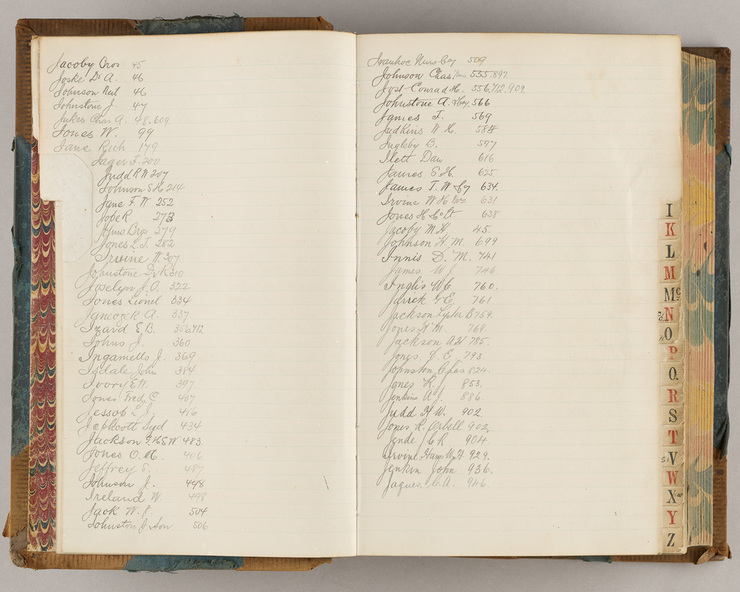 Jacoby Bros 45
Joske D. A. 46
Johnson Neil 46
Johnstone J. 47
Juker Chas A. 48. 609
Jones W. 99
Jane Rich 179
Jager F. 200
Judd R W 207
Johnson S. H. 214
Jane F. W 252
Jobe R 273
Johns Bros 279
Jones L. J. 282
Irvine W. 307
Johnstone R 310
Jocelyn J. O. 322
Jones Lionel 334
R A. 337
Izard E. B. 356,712
Johns J. 360
Ingamells J. 369
Tisdale John 384
Ivory E W. 397
Jones Fredk C 407
Jessop J. 416
Jephcott Syd 434
Jackson W 483
Jones O. A. 486
Jeffrey S. 487
Johnson J. 448
Ireland W. 498
Jack W. J 504
Johnston J. Hon 506
Ivanhoe 509
Johnson Chas 535.897
Jost Conrad H. 556,712,909
Johnstone A. 566
James T. 569
Judkins W. H. 588
Inglsby B. 597
Ilett Dav 616
James S H. 625
James T. W 634.
Irvine W H 631
Jones H 638
Jacoby M H 45.
Johnson H. M. 699
Innis D. M. 741
James W J 746
Inglis W C 760.
G E. 761
Jackson B 764.
Jones H M. 768.
Jackson A H 785.
Jones J E. 793
Johnston Chas 824.
Jones R. 853.
Jenkins A J. 886
Judd H W. 902
Jones R. Orbell 902
C R 904.
Irvine 929.
Jenkin John 936.
Jaques C. A. 946
I
K
L
M
Mc
N
O
P
Q
R
S
T
V
W
X
Y
Z